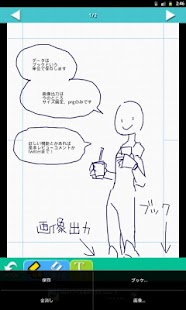 2:46
1/2
データは
ブックという
単位で保存します
画像出力は
今のところ
サイズ固定、pngのみです
詳しい機能とかあれば
是非レビューコメントか
画像出力
ブック
T
保存
ブック...
全消し
画像...